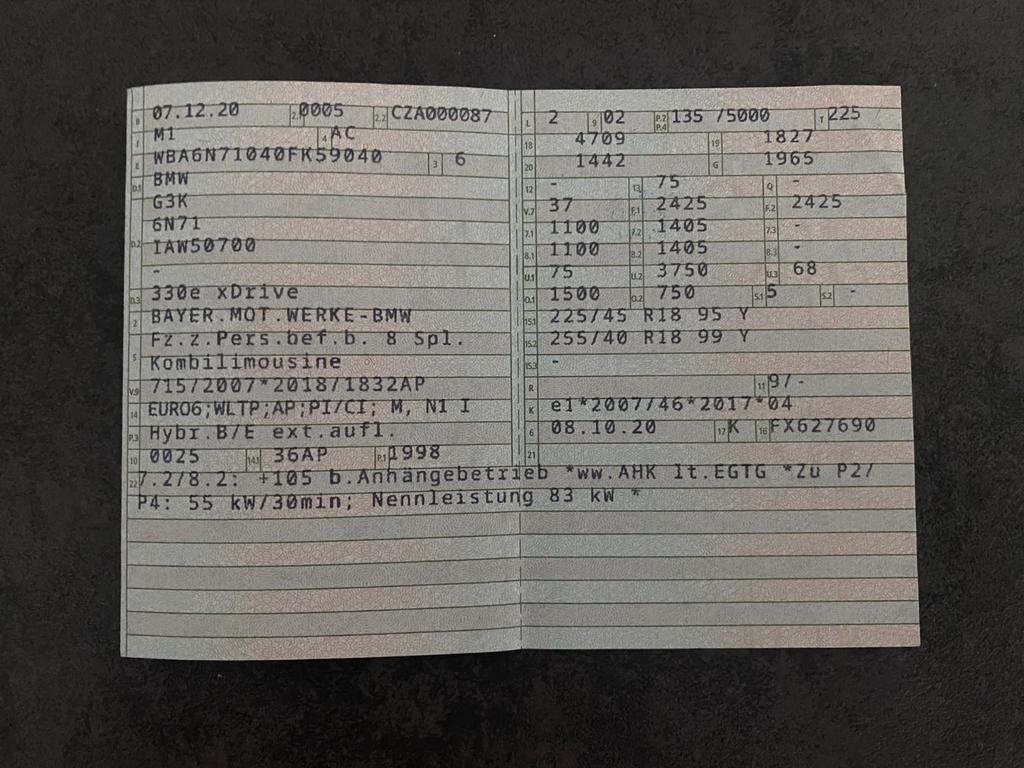 B 07.12.20 2.1 0005 2.2 CZA000087
J M1 4 AC
E WBA6N71040FK59040 3 6
D.1 BMW
G3K
D.2 6N71
IAW50700
-
D.3 330e xDrive
2 BAYER.MOT.WERKE-BMW
5 Fz.z.Pers.bef.b. 8 Spl.
Kombilimousine
V.9 715/2007*2018/1832AP
14 EURO6;WLTP;AP;PI/CI; M, N1 I
P.3 Hybr.B/E ext.aufl.
10 0025 14.1 36AP P.1 1998
L 2 9 02 P.2 P.4 135 /5000 T 225
18 4709 19 1827
20 1442 G 1965
12 - 13 75 Q -
V.7 37 F.1 2425 F.2 2425
7.1 1100 7.2 1405 7.3 -
8.1 1100 8.2 1405 8.3 -
U.1 75 U.2 3750 U.3 68
O.1 1500 O.2 750 S.1 5 S.2 -
15.1 225/45 R18 95 Y
15.2 255/40 R18 99 Y
15.3 -
R 11 9/-
K e1*2007/46*2017*04
6 08.10.20 17 K 16 FX627690
21
22 7.2/8.2: +105 b.Anhängebetrieb *ww.AHK lt.EGTG *Zu P2/
P4: 55 kW/30min; Nennleistung 83 kW *